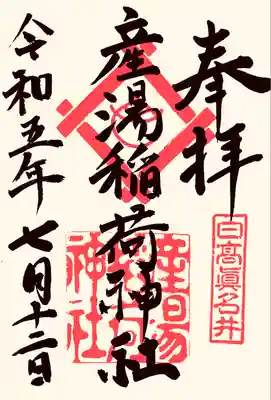 奉拝
日高真名井
産湯稲荷神社
産湯稲荷神社
令和五年七月十二日